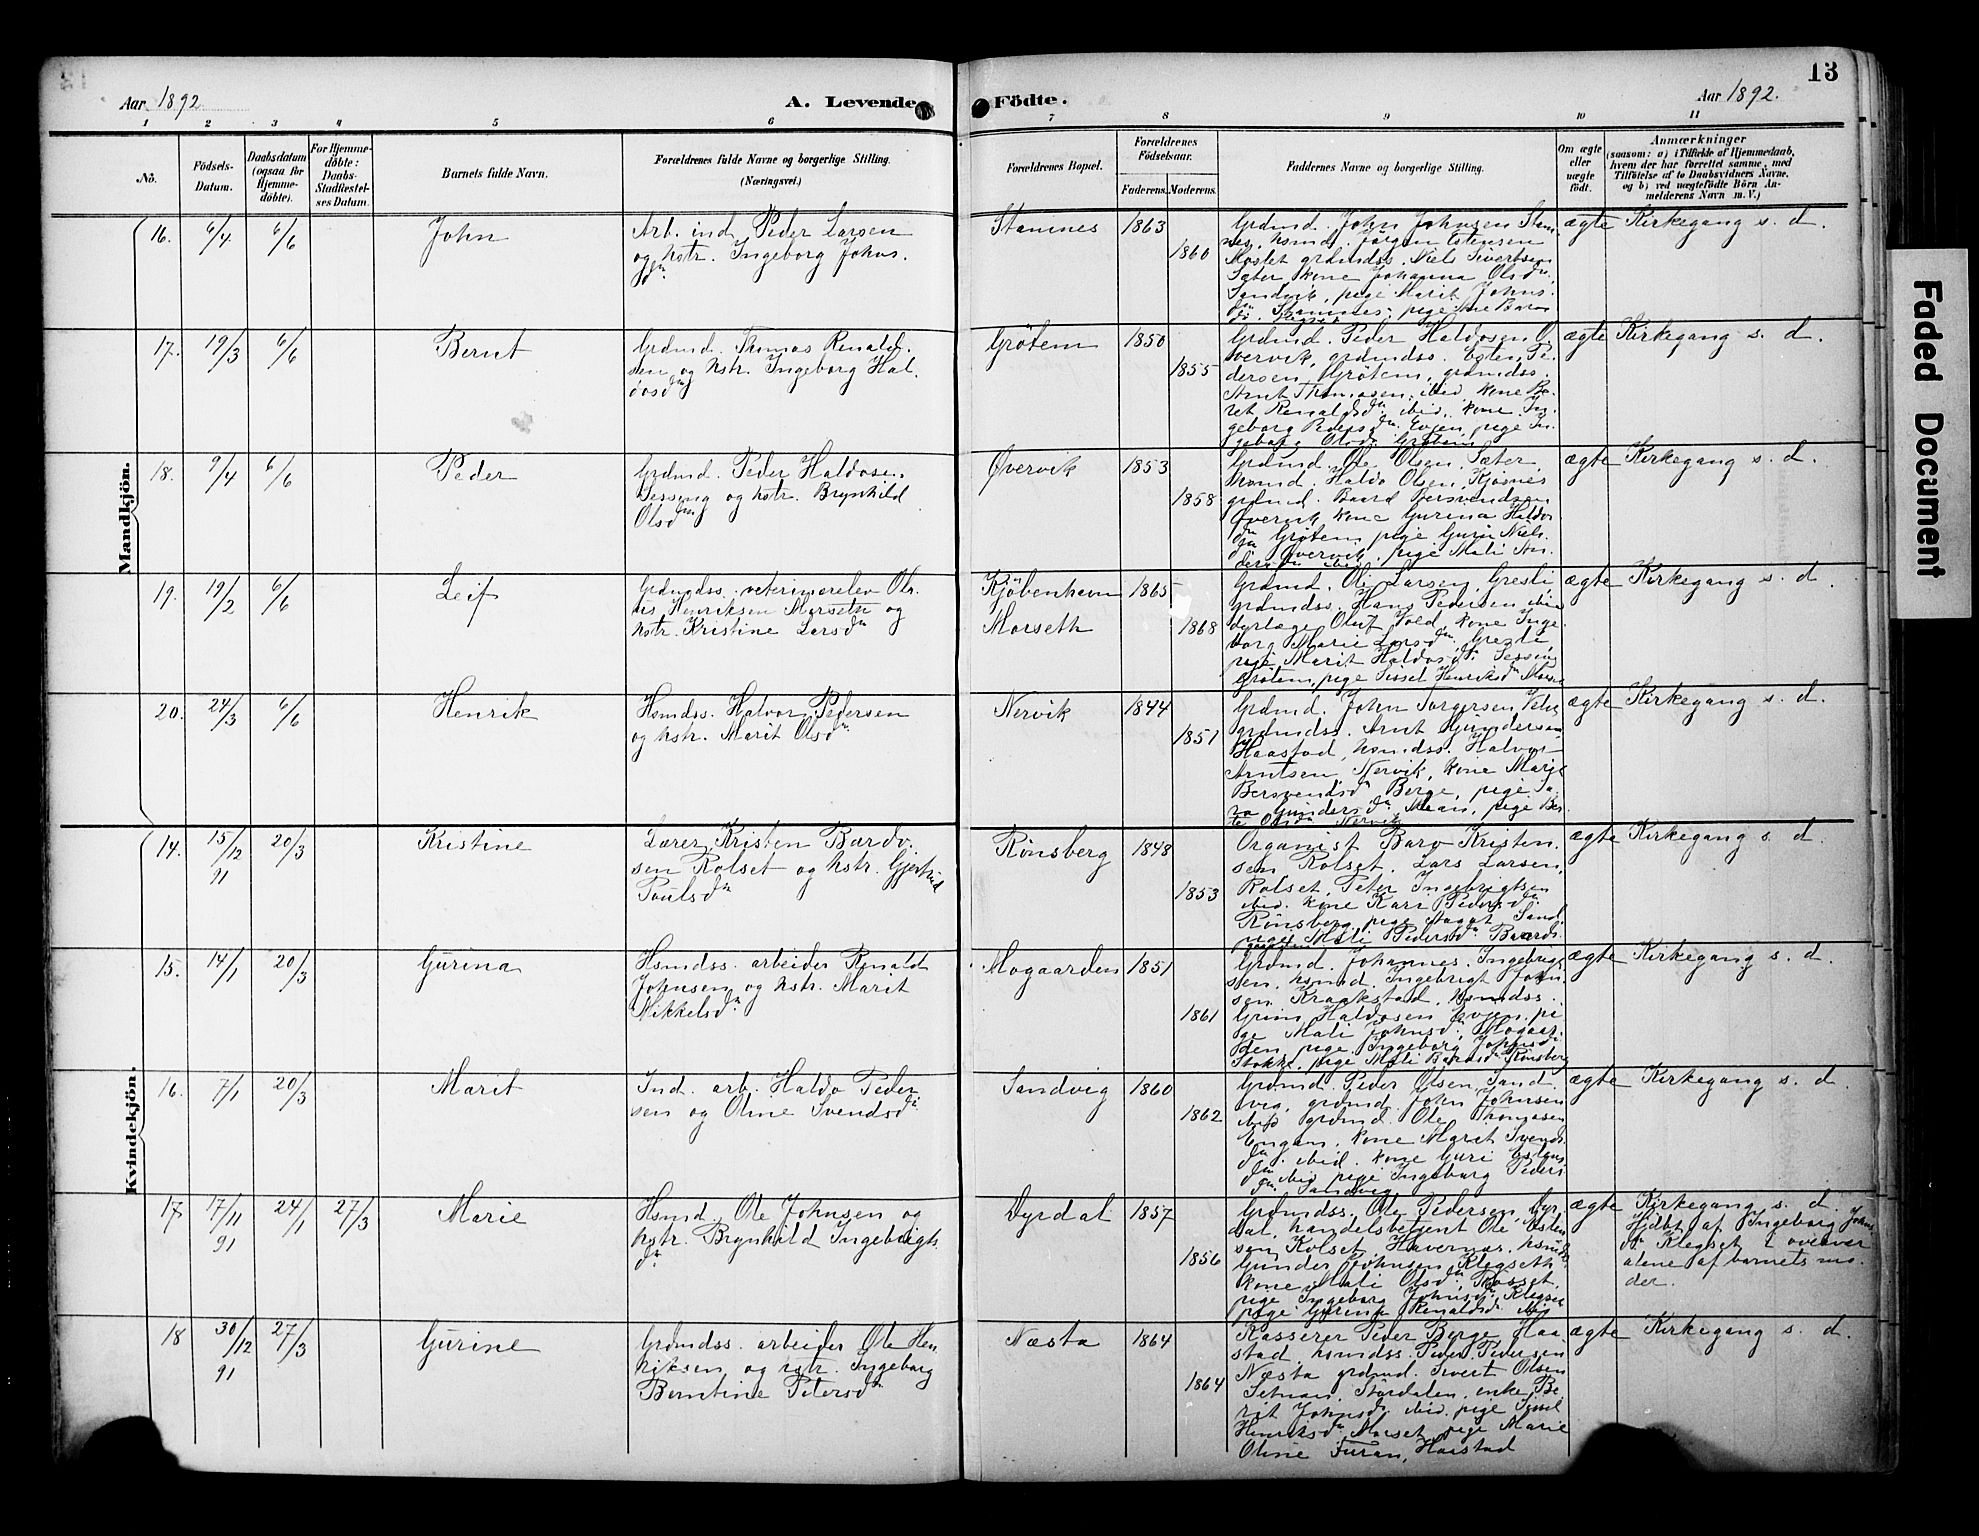 Aar 1892
A. Levende
Födte.
Aar 1892.
13
1 2 3 4 5 6 7 8 9 10 11
No.
Födsels-
Datum.
Daabsdatum
(ogsaa for
Hjemme-
döbte).
For Hjemme-
döbte:
Daabs-
Stadfæstel-
ses Datum.
Barnets fulde Navn.
Forældrenes fulde Navne og borgerlige Stilling.
(Næringsvei.)
Forældrenes Bopæl.
Forældrenes
Födselsaar.
Faderens. Moderens.
Faddernes Navne og borgerlige Stilling.
Om ægte
eller
uægte
födt.
Anmærkninger
(saasom: a) i Tilfælde af Hjemmedaab,
hvem der har forrettet samme, med
Tilföielse af to Daabsvidners Navne,
og b) ved uægtefödte Börn An-
melderens Navn m. V.)
Mandkjön.
16. 6/4 6/6 John
Arb. ind. Peder Larsen
og hstr. Ingeborg Johns.
dn
Stamnes 1863
1860
Grdmd. John Johnsen Stam
nes, hsmd. Jörgen Estensen
Moslet grdmdss. Niels Sivertsen
Sæter, kone Johanna Olsdn.
Sandvik, pige Marit Johns.
ægte Kirkegang s. d.
17. 19/3 6/6 Bernt
Grdmd. Thomas Renald.
sen og hstr. Ingeborg Hal.
dosdn
Grötem 1850
1855
Grdmd. Peder Haldosen Ö.
vervik, grdmdss. Esten Pe
dersen Grötem, grdmdss.
Arnt Thomasen, ibid. kone Be
ret Renaldsdn. ibid. kone In.
geborg Pedersdn. Evjen, pige In
geborg Olsdn. Grötem
ægte Kirkegang s. d.
18. 9/4 6/6 Peder
Grdmd. Peder Haldosen
Sessing og hstr. Brynhild
Olsdn
Øvervik 1853
1858
Grdmd. Ole Olsen, Sæter
hsmd. Haldo Olsen, Kjösnes
grdmd. Baard Bersvendsen
Øvervik kone Gurina Haldos
dn Grötem, pige Guru Niels.
dn Øvervik, pige Mali An.
ægte Kirkegang s. d.
19. 19/2 6/6 Leif
Grdmdss. veterinærelev Ole
Henriksen Morseth og
hstr. Kristine Larsdn
Kjöbenhavn
Morseth
1865
1868
Grdmd. Ole Larsen, Gresli,
grdmdss. Hans Pedersen ibid
dyrlæge Oluf Vold, kone Inge.
borg Marie Larsdn. Gresli,
pige Marit Haldosdn. Sessing
Grötem, pige Sissel Henriksdn Morse
ægte Kirkegang s. d.
20. 24/3 6/6 Henrik
Hsmdss. Halvor Pedersen
og hstr. Marit Olsdn
Nervik 1844
1851
Grdmd. John Torgersen
grdmdss. Arnt Gundersen
Haastad, hsmdss. Halvor
Arntsen, Nervik, kone Marit
Bersvendsdn Berge, pige Sa.
ra Gundersdn Moan, pige Ber
te Olsdn Nervik
ægte Kirkegang s. d.
Kvindekjön.
14. 15/12 91 20/3 Kristine
Lærer Kristen Bardo.
sen Rolset og hstr. Gjertrud
Poulsdn
Rönsberg 1848
1853
Organist Baro Kristen.
sen Rolset. Lars Larsen,
Rolset, Peter Ingebrigtsen
ibid. kone Kari Pedersdn.
Rönsberg, pige Aagot Sand.
pige Mali Pedersdn Baards
ægte Kirkegang s. d.
15. 14/1 20/3 Gurina
Hsmdss. arbeider Renald
Johnsen og hstr. Marit
Mikkelsdn
Mogaarden 1851
1861
Grdmd. Johannes Ingebrigt
sen, hsmd. Ingebrigt John
sen Kraakstad, hsmdss.
Grim Haldosen Evjen, pi
ge Mali Johnsdn. Mogaar.
den, pige Ingeborg Johnsdn.
Stokke, pige Mali Barosdn Rönsberg
ægte Kirkegang s. d.
16. 7/1 20/3 Marit
Ind. arb. Haldo Peder
sen og Oline Svendsdn.
Sandvig 1860
1862
Grdmd. Peder Olsen, Sand
vig, grdmd. John Johnsen
ibid grdmd. Ole Thomasen
Engan, kone Marit Svends
dn. ibid. kone Guri Estens
dn ibid pige Ingeborg Peders
dn Sandvig
ægte Kirkegang s. d.
17 17/11 91 24/1 27/3 Marie
Hsmd. Ole Johnsen og
hstr. Brynhild Ingebrigts.
dn
Dyrdal 1857
1856
Grdmdss. Ole Pedersen, Dyr
dal, handelsbetjent Ole Esten
sen Kolset, Havernæs, hsmd.
Gunder Johnsen Klegseth
kone Mali Olsdn Rosset,
pige Ingeborg Johnsdn. Klegset
pige Gurina Renaldsdn.
ægte Kirkegang s. d.
Hjdbt af Ingeborg Johns
dn Klegset i overvær
alene af barnets mo.
der.
18 30/12 91 27/3 Gurine
Grdmdss. arbeider Ole Hen
riksen og hstr. Ingeborg
Berntine Petersdn
Næsta 1864
1864
Kasserer Peder Berge Haa
stad. hsmdss. Peder Pedersen
Næsta grdmd. Sivert Olsen
Setnan, Stördalen, enke Be
rit Johnsdn ibid. pige Sissel
Henriksdn Morset, pige Marie
Oline Furan, Haastad
ægte Kirkegang s. d.
Faded Document